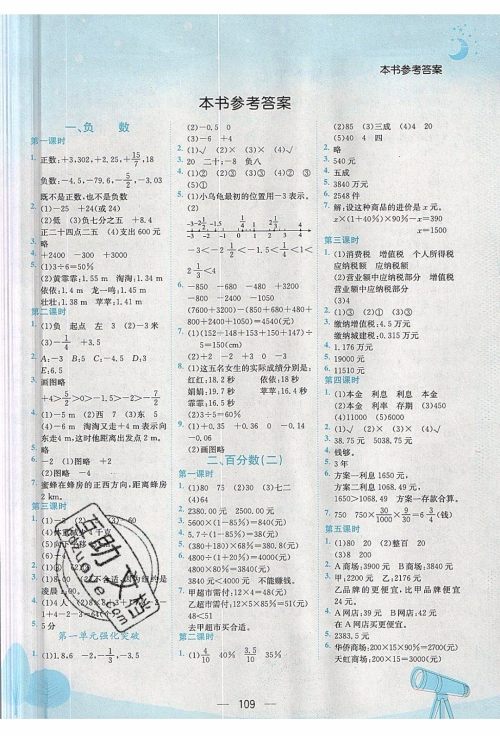 本书参考答案
本书参考答案
一、负 数
第一课时
1. 正数：+3.302，+2.25，+15/7，18
负数：-4.5，-79.6，-5/2，-3.03
既不是正数，也不是负数
2. (1)-25 +24(或24)
(2)低 (3)负十分之五 +8.4
正二十四点二五 (4)支出600元
3. 略
4. +2400 -300 +3000
5. (1)3÷6=50%
(2)黄霏霏：1.55 m 淘淘：1.34 m
依依：1.4 m 龙一鸣：1.45 m
壮壮：1.38 m 苹苹：1.41 m
第二课时
1. (1)负 起点 左 3 (2)-3米
(3)-1/4 +3.5
2. A：-3 B：5 C：-4.5 D：3
E：6.5
3. 画图略
4. (1)-5 m (2)西 7 (3)东 5
(4)-6 m 淘淘又走+4 m表示向
东走4 m，这时他距离出发点2 m。
5. 略
6. -2 (1)图略 +2
(2)图略 -4
7. 蜜蜂在蜂房的正西方向，距离蜂房
2 km。
第三课时
凌晨
5. 5分
第一单元强化突破
1. (1)1.8，6 -2，-1/3，-3.5
(2)-0.5 0
(3)-6 +4
2. (1)√ (2)× (3)× (4)√
3. 20 二十；-8 负八
4. (1)② (2)③ (3)① (4)② ③
(5)①
5. (1)小乌龟最初的位置用-3表示。
(2)
6. -850 -680 -480 +3200
-800 -2400 -1050
(7600+3200)-(850+680+480+
800+2400+1050)=4540(元)
7. (1)(152+148+153+150+147)÷
5=150(cm)
(2)+2 -2 +3 0 -3
8. (1)这五名女生的实际成绩分别是：
红红：18.2秒 依依：18秒
娟娟：19.7秒 苹苹：16.4秒
霏霏：16.5秒
(2)3÷5=60%
9. (1)+0.35 +0.36 0 -0.14
-0.06
(2)画图略
二、百分数(二)
第一课时
1. (1)80 75 (2)30 (3)七二
(4)64
2. 2380.00元 2500.00元
3. 5600×(1-85%)=840(元)
4. 5.7÷(1-85%)=38(元)
5. (380+180)×68%=380.8(元)
6. 4800÷(1+20%)=4000(元)
4800×80%=3840(元)
3840元<4000元 不能赚钱。
7. 甲超市需付：12×4=48(元)
乙超市需付：12×5×85%=51(元)
48<51
去甲超市买合适。
第二课时
1. (1)4/10 40% 3.5/10 35%
(2)85 (3)三成 (4)4 20
(5)40 4 四
2. 略
3. 540元
4. 五成
5. 3840万元
6. 2548件
7. 解：设这种商品的进价是x元。
x×(1+40%)×90%-x=390
x=1500
第三课时
1. (1)消费税 增值税 个人所得税
应纳税额 应纳税额
(2)营业额中应纳税部分 增值税
营业额中应纳税部分
(3)4
2. (1)③ (2)① (3)③
3. 缴纳增值税：4.5万元
缴纳城建税：0.315万元
4. 1.176万元
5. 19000元
6. 11510元
第四课时
1. (1)本金 利息 利息 本金
(2)本金 利率 存期 (3)450
(4)11000 (5)6000
2. (1)√ (2)× (3)× (4)√
3. 38.75元 5038.75元
4. 钱够。
5. 3年
6. 方案一利息1650元，
方案二利息1068.49元。
1650>1068.49 方案一存款合算。
7. 750 750×30/1000×9/30=6 3/4(钱)
第五课时
1. (1)80 20 (2)整百 20
(3)8 200
2. A商场：3900元 B商场：3840元
3. 甲：2200元 乙：2176元
乙品牌的更便宜，比甲品牌便宜
24元。
4. A网店：39元 B网店：42元
在A网店买更便宜。
5. 2383.5元
6. 华侨商场：200×15×90%=2700(元)
天虹商场：200×15=3000(元)
109